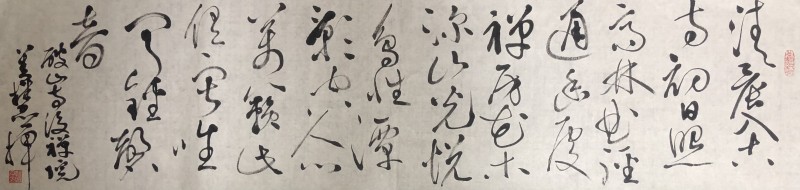 清晨入古
寺初日照
高林曲径
通幽處
禅房花木
深山光悦
鸟性潭
影空人心
萬籁此
俱寂唯
聞鐘磬
音
破山寺後禅院